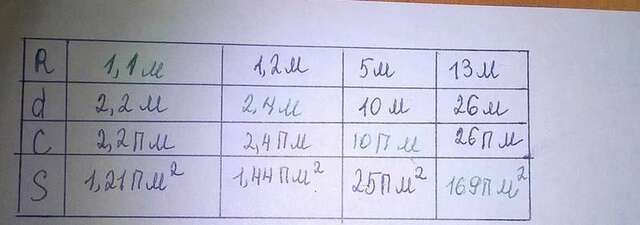 R 1,1м 1,2м 5м 13м
d 2,2м 2,4м 10м 26м
C 2,2Пм 2,4Пм 10Пм 26Пм
S 1,21Пм² 1,44Пм² 25Пм² 169Пм²